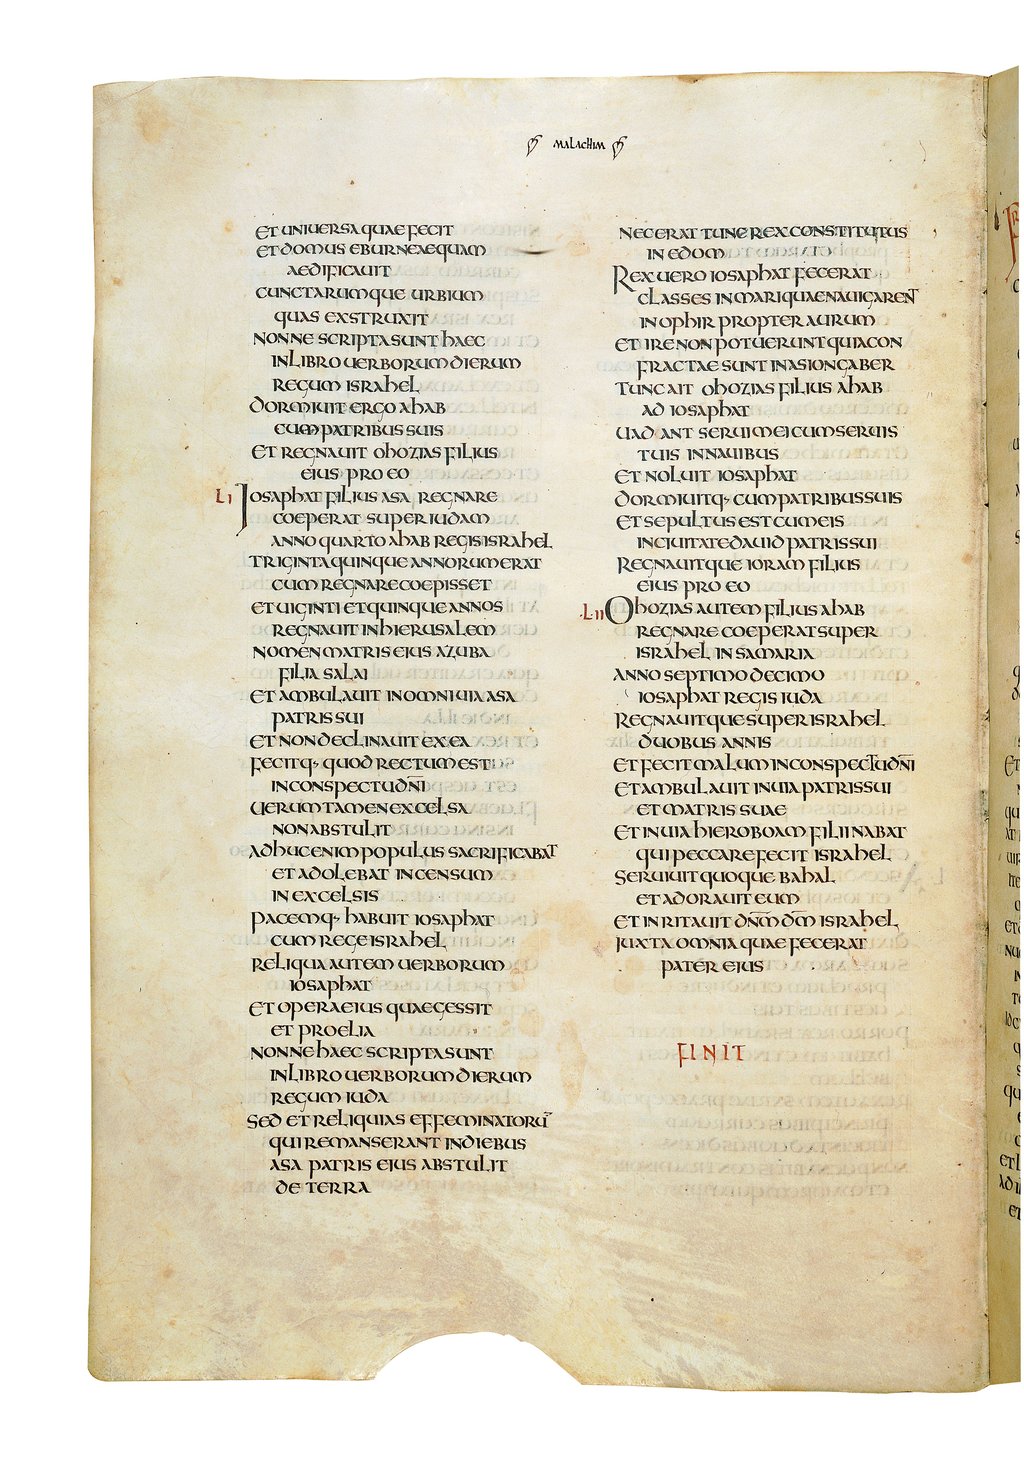 MALACHIM
ET UNIUERSA QUAE FECIT
ET DOMUS EBURNEAE QUAM
AEDIFICAUIT
CUNCTARUMQUE URBIUM
QUAS EXSTRUXIT
NONNE SCRIPTA SUNT HAEC
IN LIBRO UERBORUM DIERUM
REGUM ISRAHEL
DORMIUIT ERGO AHAB
CUM PATRIBUS SUIS
ET REGNAUIT OHOZIAS FILIUS
EIUS PRO EO
LI IOSAPHAT FILIUS ASA REGNARE
COEPERAT SUPER IUDAM
ANNO QUARTO AHAB REGIS ISRAHEL
TRIGINTA QUINQUE ANNORUM ERAT
CUM REGNARE COEPISSET
ET UIGINTI ET QUINQUE ANNOS
REGNAUIT IN HIERUSALEM
NOMEN MATRIS EIUS AZUBA
FILIA SALAI
ET AMBULAUIT IN OMNI UIA ASA
PATRIS SUI
ET NON DECLINAUIT EX EA
FECITQ· QUOD RECTUM EST
IN CONSPECTU DN̄I
UERUMTAMEN EXCELSA
NON ABSTULIT
ADHUC ENIM POPULUS SACRIFICABAT
ET ADOLEBAT INCENSUM
IN EXCELSIS
PACEMQ· HABUIT IOSAPHAT
CUM REGE ISRAHEL
RELIQUA AUTEM UERBORUM
IOSAPHAT
ET OPERA EIUS QUAE GESSIT
ET PROELIA
NONNE HAEC SCRIPTA SUNT
IN LIBRO UERBORUM DIERUM
REGUM IUDA
SED ET RELIQUIAS EFFEMINATORŪ
QUI REMANSERANT IN DIEBUS
ASA PATRIS EIUS ABSTULIT
DE TERRA
NEC ERAT TUNE REX CONSTITUTUS
IN EDOM
REX UERO IOSAPHAT FECERAT
CLASSES IN MARI QUAE NAUIGARENT
IN OPHIR PROPTER AURUM
ET IRE NON POTUERUNT QUIA CON
FRACTAE SUNT IN ASIONGABER
TUNC AIT OHOZIAS FILIUS AHAB
AD IOSAPHAT
UADANT SERUI MEI CUM SERUIS
TUIS IN NAUIBUS
ET NOLUIT IOSAPHAT
DORMIUITQ· CUM PATRIBUS SUIS
ET SEPULTUS EST CUM EIS
IN CIUITATE DAUID PATRIS SUI
REGNAUITQUE IORAM FILIUS
EIUS PRO EO
LII OHOZIAS AUTEM FILIUS AHAB
REGNARE COEPERAT SUPER
ISRAHEL IN SAMARIA
ANNO SEPTIMO DECIMO
IOSAPHAT REGIS IUDA
REGNAUITQUE SUPER ISRAHEL
DUOBUS ANNIS
ET FECIT MALUM IN CONSPECTU DN̄I
ET AMBULAUIT IN UIA PATRIS SUI
ET MATRIS SUAE
ET IN UIA HIEROBOAM FILII NABAT
QUI PECCARE FECIT ISRAHEL
SERUIUIT QUOQUE BAHAL
ET ADORAUIT EUM
ET INRITAUIT DN̄M D̄M ISRAHEL
IUXTA OMNIA QUAE FECERAT
PATER EIUS
FINIT